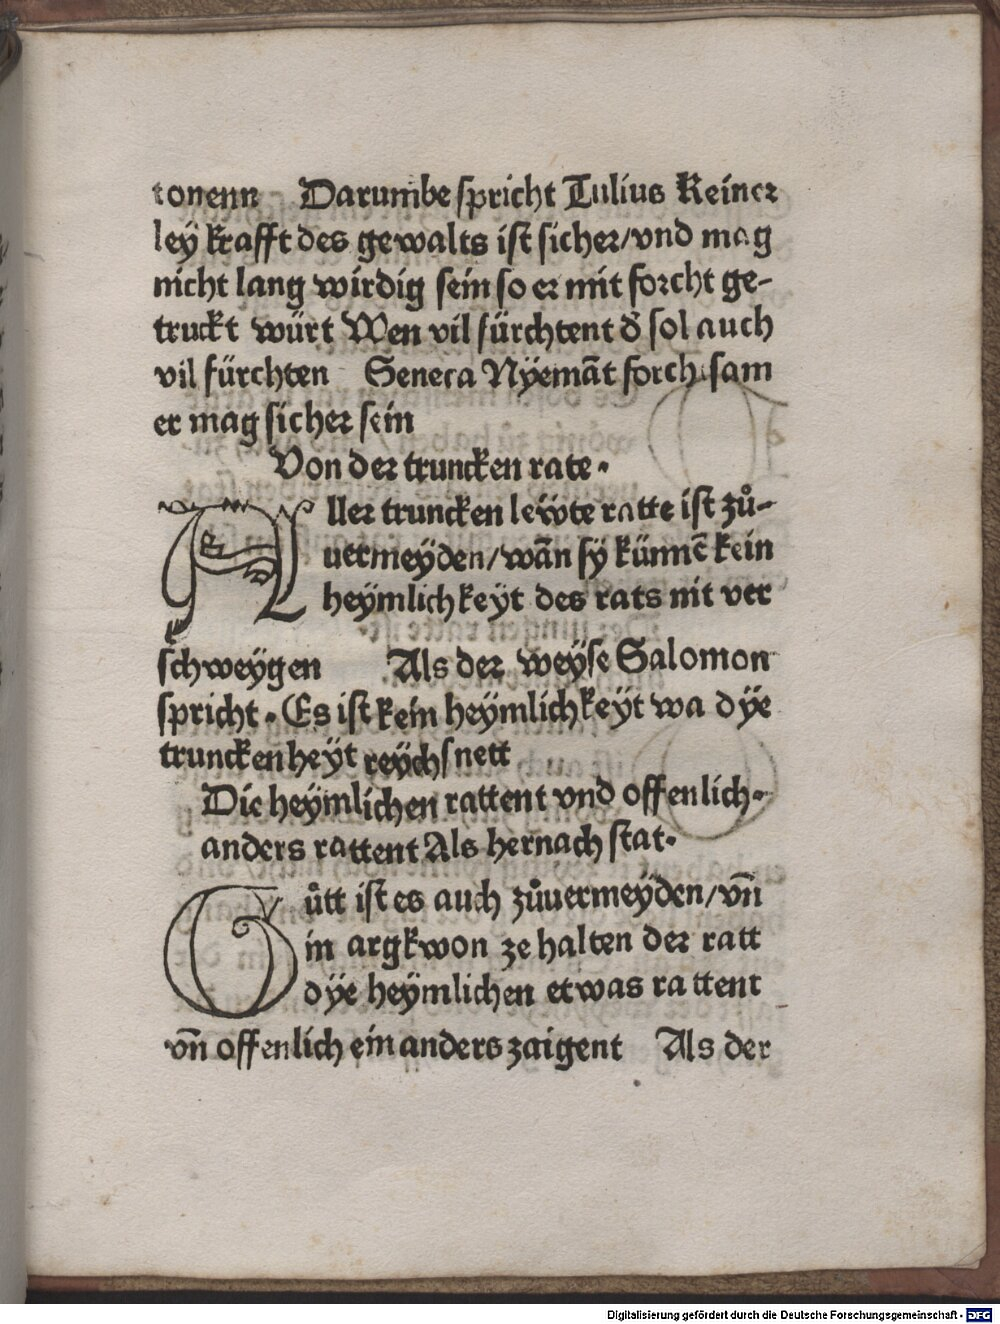 tonenn Darumbe spricht Tulius Keiner
ley krafft des gewalts ist sicher/vnd mag
nicht lang wirdig sein so er mit forcht ge-
truckt würt Wen vil fürchtent d̕ sol auch
vil fürchten Seneca Nÿemāt forchtsam
er mag sicher sein
Von der truncken rate.
Aller truncken leẅte ratte ist zů-
uermeÿden/wān sÿ künnē kein
heÿmlichkeÿt des rats nit ver
schweÿgen Als der weÿse Salomon
spricht. Es ist kein heÿmlichkeÿt wa dÿe
trunckenheÿt reÿchsnett
Die heÿmlichen rattent vnd offenlich.
anders rattent Als hernach stat.
Gůtt ist es auch zůuermeÿden/vn̄
in argkwon ze halten der ratt
dÿe heÿmlichen etwas rattent
vn̄ offenlich ein anders zaigent Als der
Digitalisierung gefördert durch die Deutsche Forschungsgemeinschaft - DFG